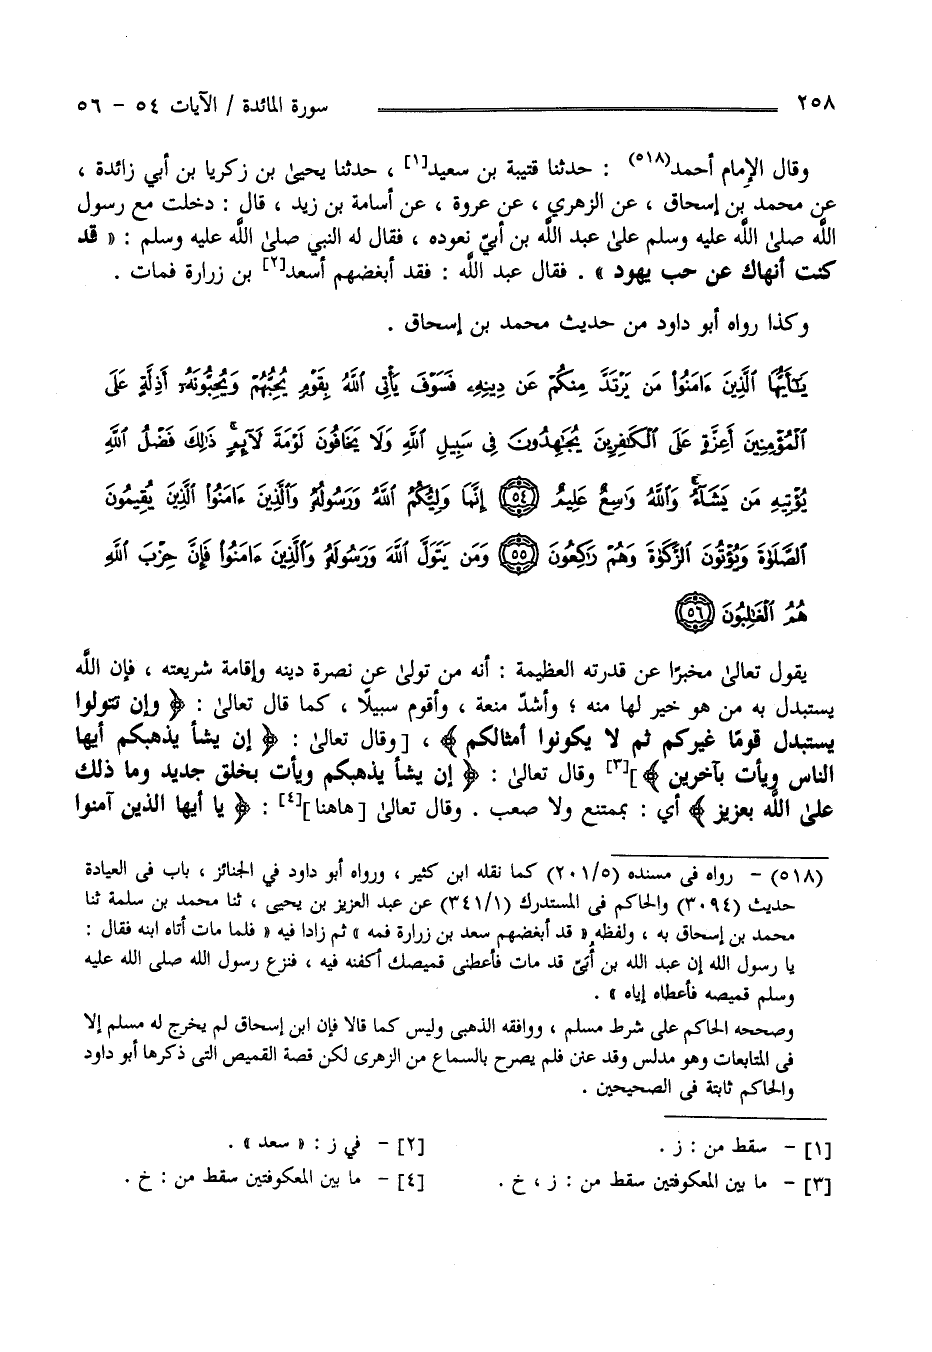 ٢٥٨ سورة المائدة / الآيات ٥٤ - ٥٦
وقال الإمام أحمد(٥١٨) : حدثنا قتيبة بن سعيد[١] ، حدثنا يحيىٰ بن زكريا بن أبي زائدة ،
عن محمد بن إسحاق ، عن الزهري ، عن عروة ، عن أسامة بن زيد ، قال : دخلت مع رسول
اللَّه صلىٰ اللَّه عليه وسلم علىٰ عبد اللَّه بن أبيّ نعوده ، فقال له النبي صلىٰ اللَّه عليه وسلم : « قد
كنت أنهاك عن حب يهود » . فقال عبد اللَّه : فقد أبغضهم أسعد[٢] بن زرارة فمات .
وكذا رواه أبو داود من حديث محمد بن إسحاق .
يَٰٓأَيُّهَا ٱلَّذِينَ ءَامَنُوا۟ مَن يَرْتَدَّ مِنكُمْ عَن دِينِهِۦ فَسَوْفَ يَأْتِى ٱللَّهُ بِقَوْمٍ يُحِبُّهُمْ وَيُحِبُّونَهُۥٓ أَذِلَّةٍ عَلَى
ٱلْمُؤْمِنِينَ أَعِزَّةٍ عَلَى ٱلْكَٰفِرِينَ يُجَٰهِدُونَ فِى سَبِيلِ ٱللَّهِ وَلَا يَخَافُونَ لَوْمَةَ لَآئِمٍ ۚ ذَٰلِكَ فَضْلُ ٱللَّهِ
يُؤْتِيهِ مَن يَشَآءُ ۚ وَٱللَّهُ وَٰسِعٌ عَلِيمٌ ٥٤ إِنَّمَا وَلِيُّكُمُ ٱللَّهُ وَرَسُولُهُۥ وَٱلَّذِينَ ءَامَنُوا۟ ٱلَّذِينَ يُقِيمُونَ
ٱلصَّلَوٰةَ وَيُؤْتُونَ ٱلزَّكَوٰةَ وَهُمْ رَٰكِعُونَ ٥٥ وَمَن يَتَوَلَّ ٱللَّهَ وَرَسُولَهُۥ وَٱلَّذِينَ ءَامَنُوا۟ فَإِنَّ حِزْبَ ٱللَّهِ
هُمُ ٱلْغَٰلِبُونَ ٥٦
يقول تعالىٰ مخبرًا عن قدرته العظيمة : أنه من تولىٰ عن نصرة دينه وإقامة شريعته ، فإن اللَّه
يستبدل به من هو خير لها منه ؛ وأشدّ منعة ، وأقوم سبيلًا ، كما قال تعالىٰ : ﴿ وإن تتولوا
يستبدل قومًا غيركم ثم لا يكونوا أمثالكم ﴾ ، [وقال تعالىٰ : ﴿ إن يشأ يذهبكم أيها
الناس ويأت بآخرين ﴾][٣] وقال تعالىٰ : ﴿ إن يشأ يذهبكم ويأت بخلق جديد وما ذلك
علىٰ اللَّه بعزيز ﴾ أي : بممتنع ولا صعب . وقال تعالىٰ [هاهنا][٤] : ﴿ يا أيها الذين آمنوا
(٥١٨) - رواه فى مسنده (٢٠١/٥) كما نقله ابن كثير ، ورواه أبو داود في الجنائز ، باب فى العيادة
حديث (٣٠٩٤) والحاكم فى المستدرك (٣٤١/١) عن عبد العزيز بن يحيى ، ثنا محمد بن سلمة ثنا
محمد بن إسحاق به ، ولفظه « قد أبغضهم سعد بن زرارة فمه » ثم زادا فيه « فلما مات أتاه ابنه فقال :
يا رسول الله إن عبد الله بن أُبَيّ قد مات فأعطنى قميصك أكفنه فيه ، فنزع رسول الله صلى الله عليه
وسلم قميصه فأعطاه إياه » .
وصححه الحاكم على شرط مسلم ، ووافقه الذهبى وليس كما قالا فإن ابن إسحاق لم يخرج له مسلم إلا
فى المتابعات وهو مدلس وقد عنن فلم يصرح بالسماع من الزهرى لكن قصة القميص التى ذكرها أبو داود
والحاكم ثابتة فى الصحيحين .
[١] - سقط من : ز . [٢] - في ز : « سعد » .
[٣] - ما بين المعكوفتين سقط من : ز ، خ . [٤] - ما بين المعكوفتين سقط من : خ .